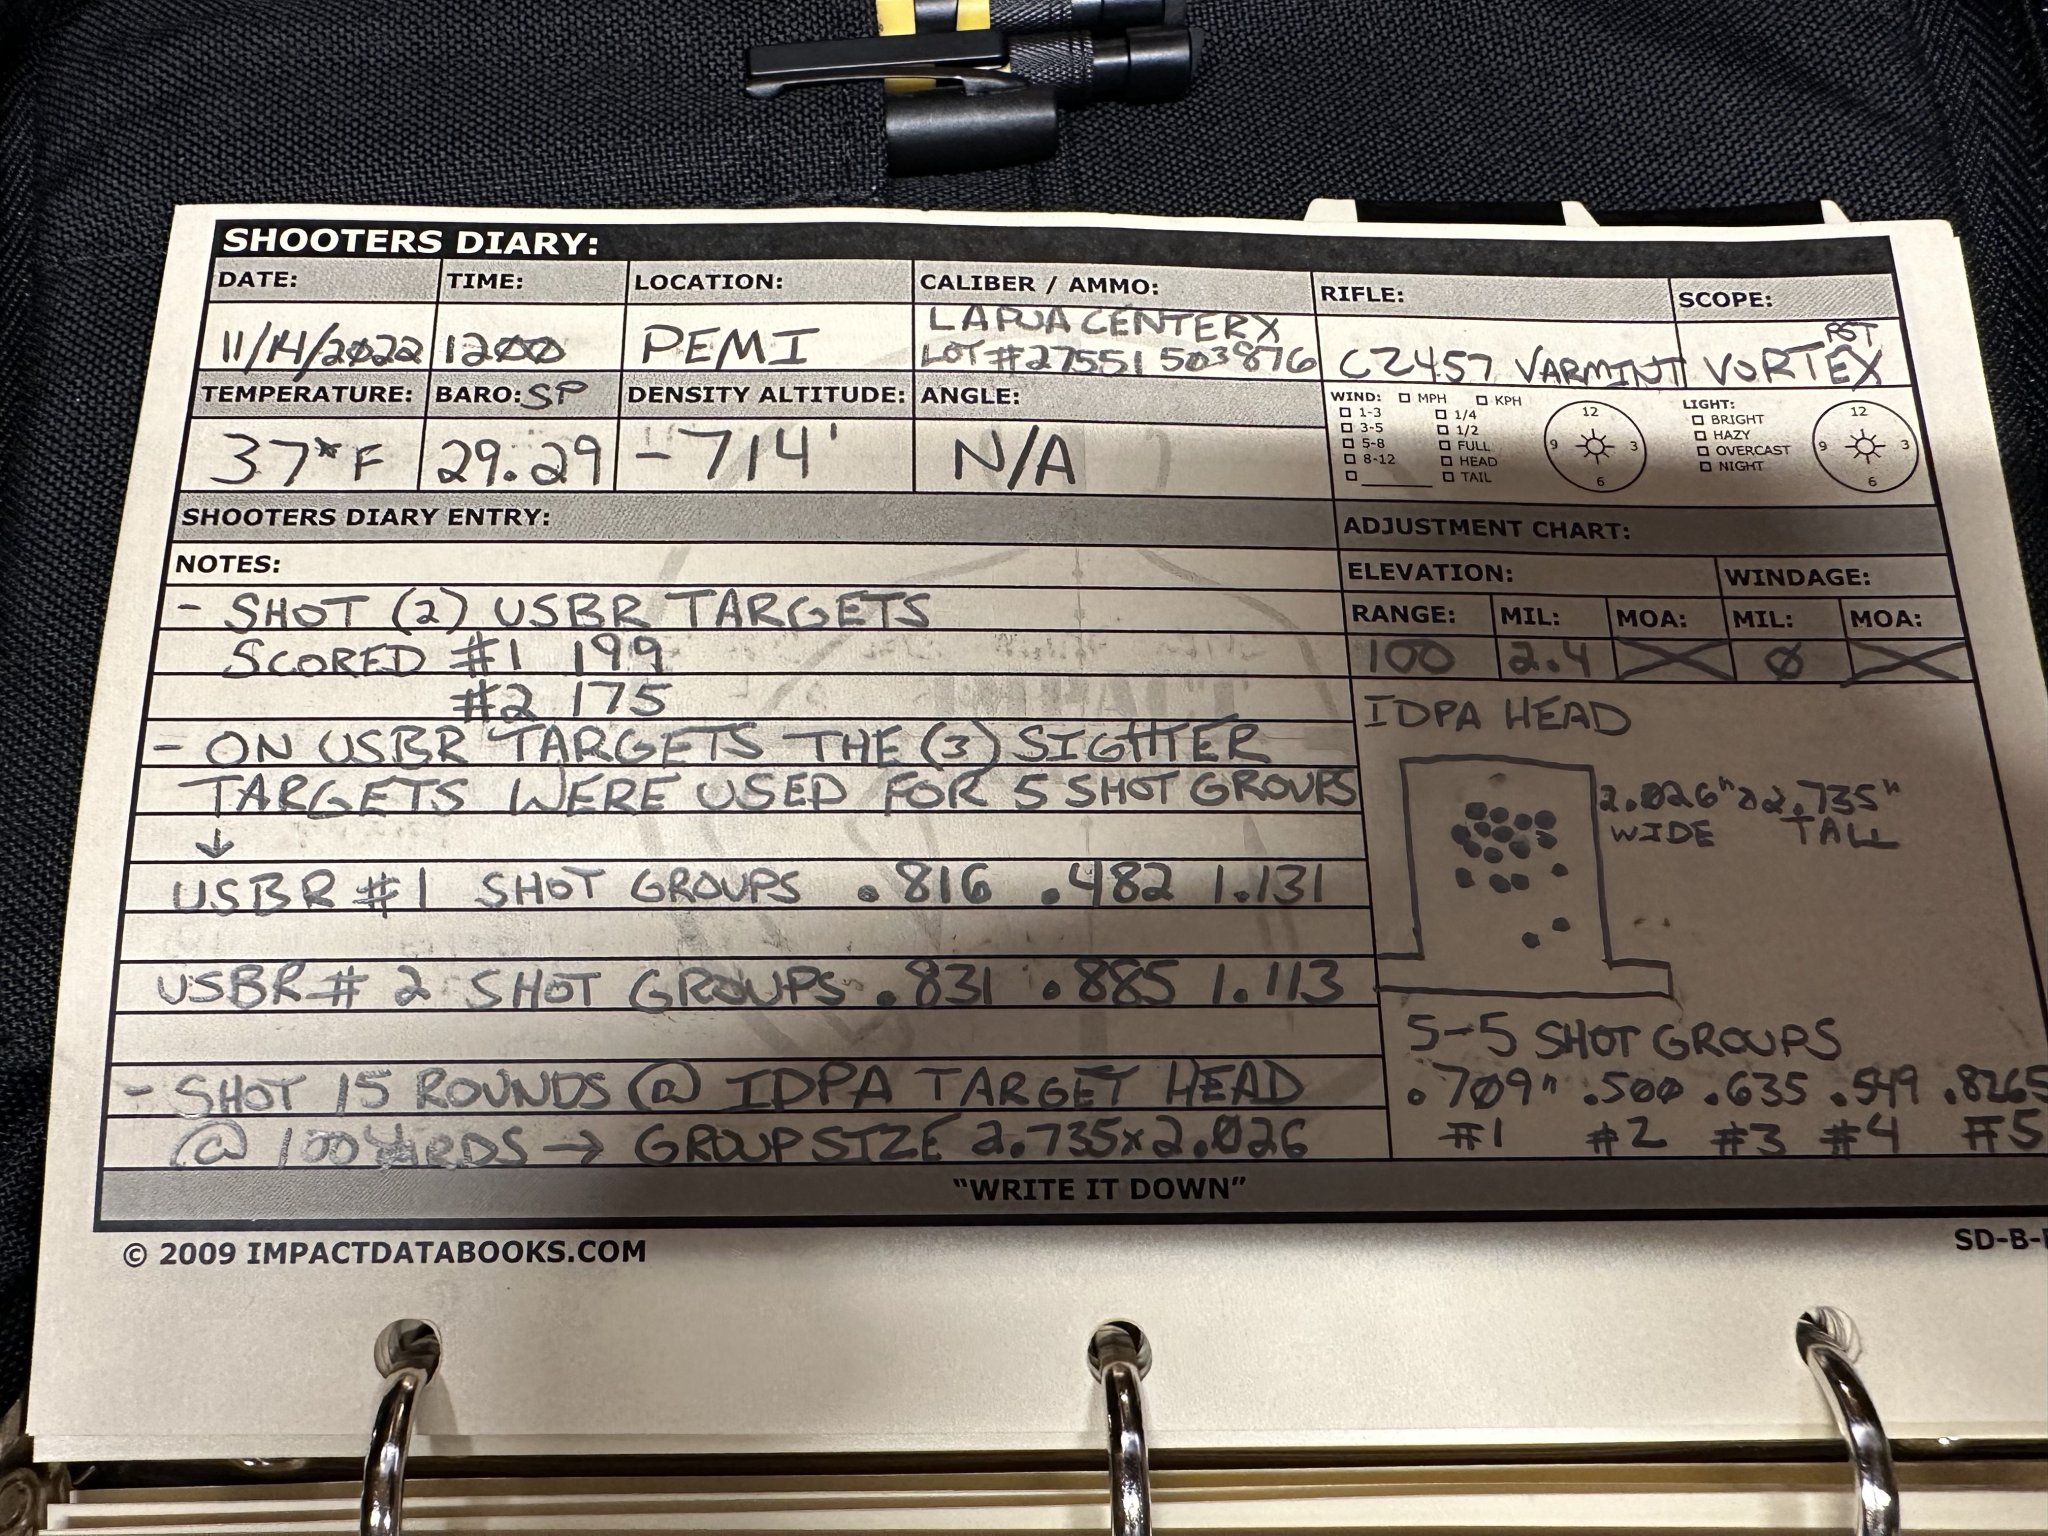 SHOOTERS DIARY:
DATE: TIME: LOCATION: CALIBER / AMMO: RIFLE: SCOPE:
11/14/2022 1200 PEMI LAPUA CENTER X CZ457 VARMINT VORTEX PST
LOT #27551 503876
TEMPERATURE: BARO: SP DENSITY ALTITUDE: ANGLE:
37°F 29.29 -714' N/A
WIND: MPH KPH
1-3 1/4
3-5 1/2
5-8 FULL
8-12 HEAD
TAIL
12
9 3
6
LIGHT:
BRIGHT
HAZY
OVERCAST
NIGHT
12
9 3
6
SHOOTERS DIARY ENTRY:
NOTES:
- SHOT (2) USBR TARGETS
SCORED #1 199
#2 175
- ON USBR TARGETS THE (3) SIGHTER
TARGETS WERE USED FOR 5 SHOT GROUPS
↓
USBR #1 SHOT GROUPS .816 .482 1.131
USBR # 2 SHOT GROUPS .831 .885 1.113
- SHOT 15 ROUNDS @ IDPA TARGET HEAD
@ 100 YARDS → GROUP SIZE 2.735x2.026
ADJUSTMENT CHART:
ELEVATION: WINDAGE:
RANGE: MIL: MOA: MIL: MOA:
100 2.4 0
IDPA HEAD
2.026" x 2.735"
WIDE TALL
5-5 SHOT GROUPS
.709" .500 .635 .549 .8265
#1 #2 #3 #4 #5
"WRITE IT DOWN"
© 2009 IMPACTDATABOOKS.COM
SD-B-